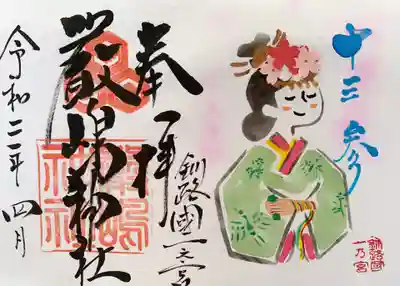 十三参
奉拝
釧路國一之宮
厳島神社
令和二年四月
厳嶋神社
釧路國一乃宮